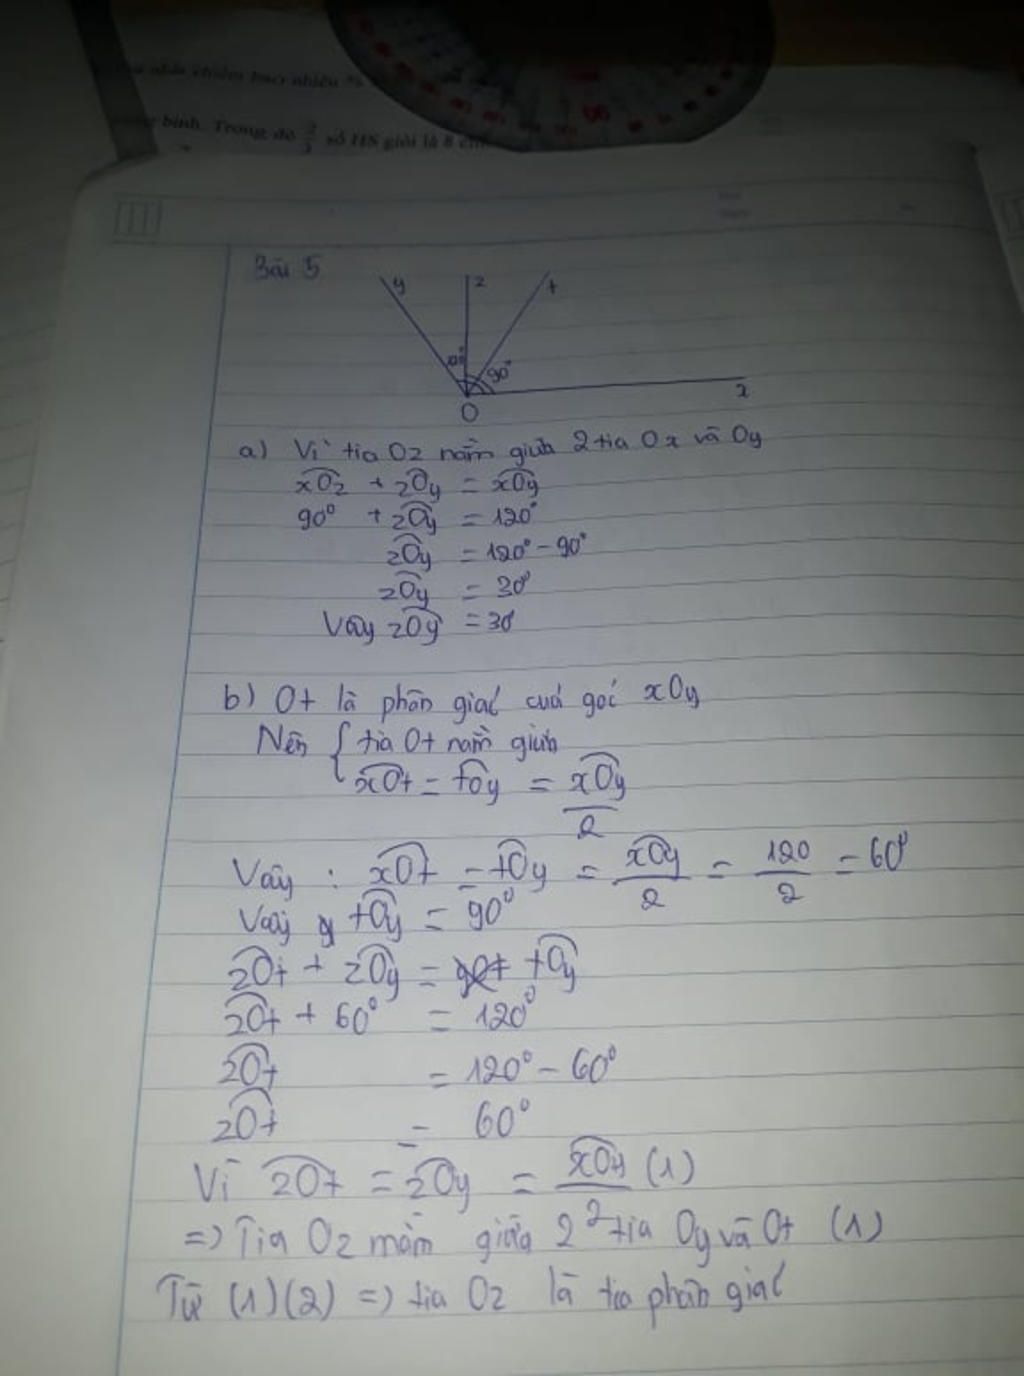 nhất chiếm bao nhiêu %
bình. Trong đó 2/3 số HS giỏi là 8
Bài 5
y z t
90°
x
O
a) Vì tia Oz nằm giữa 2 tia Ox và Oy
xOz + zOy = xOy
90° + zOy = 120°
zOy = 120° - 90°
zOy = 30°
Vậy zOy = 30
b) Ot là phân giác cuả góc xOy
Nên { tia Ot nằm giữa
xOt = tOy = xOy/2
Vậy : xOt = tOy = xOy/2 = 120/2 = 60°
Vậy tOy = 90°
zOt + zOy = tOy
zOt + 60° = 120°
zOt = 120° - 60°
zOt = 60°
Vì zOt = zOy = xOy/2 (1)
=> Tia Oz nằm giữa 2 tia Oy và Ot (1)
Từ (1)(2) => tia Oz là tia phân giác